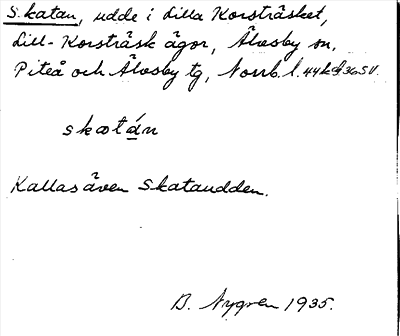 Skatan, udde i Lilla Korsträsket,
Lill-Korsträsk ägor, Älvsby sn,
Piteå och Älvsby tg, Norrb. l.
skatán
Kallas även Skataudden.
B. Nygren 1935.